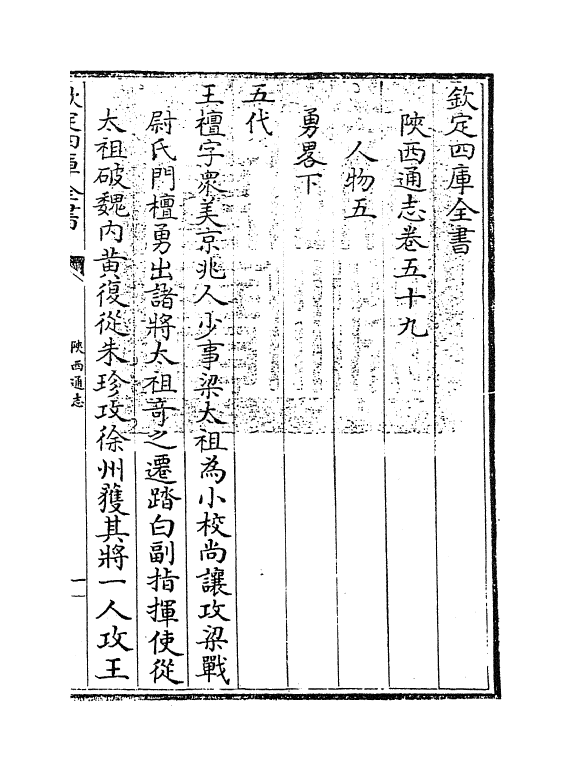 欽定四庫全書
陝西通志卷五十九
人物五
勇畧下
五代
王檀字衆美京兆人少事梁太祖為小校尚讓攻梁戰
尉氏門檀勇出諸將太祖竒之遷踏白副指揮使從
太祖破魏内黄復從朱珍攻徐州獲其將一人攻王
欽定四庫全書
陝西通志
一